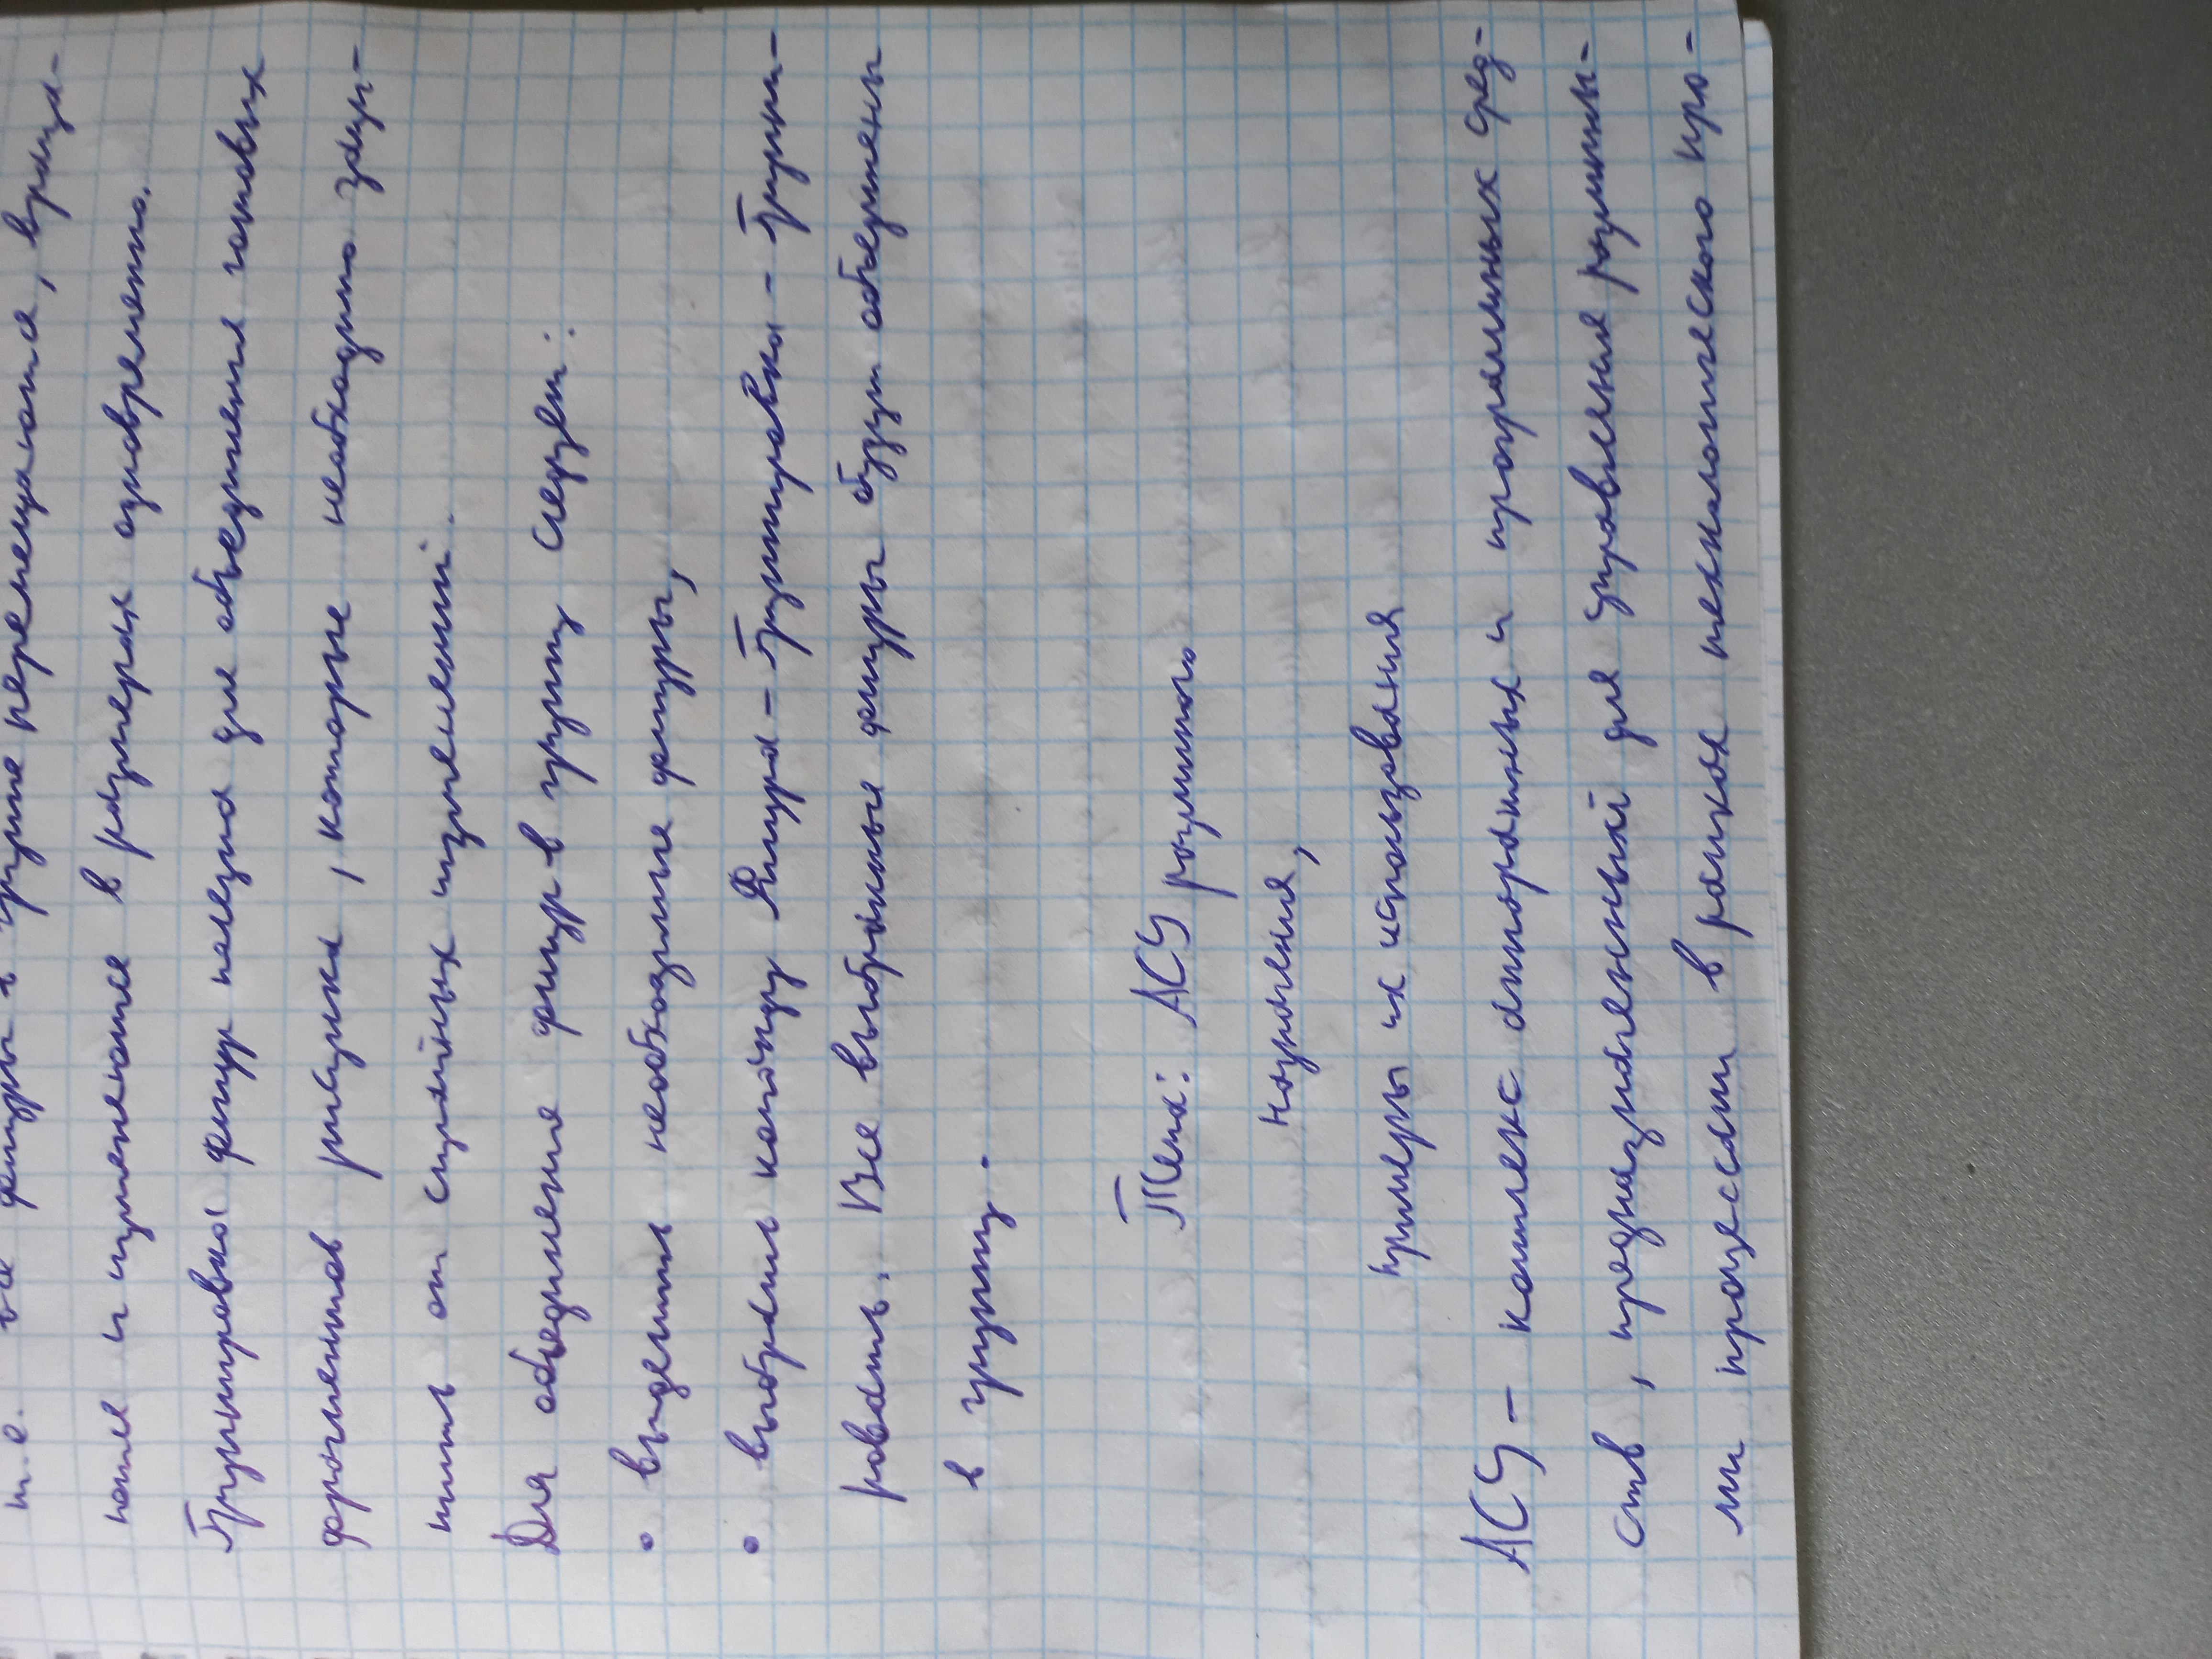 т.е. все фигуры в группе перемещаются, враща-
ются и изменяются в размерах одновременно.
Группировка фигур полезна для объединения готовых
фрагментов рисунка, которые необходимо защи-
тить от случайных изменений.
Для объединения фигур в группу следует:
• выделить необходимые фигуры,
• выбрать команду Фигура - Группировка - Группи-
ровать. Все выбранные фигуры будут объединены
в группу.
Тема: АСУ различного
назначения,
примеры их использования
АСУ - комплекс аппаратных и программных сред-
ств, предназначенный для управления различны-
ми процессами в рамках технологического про-